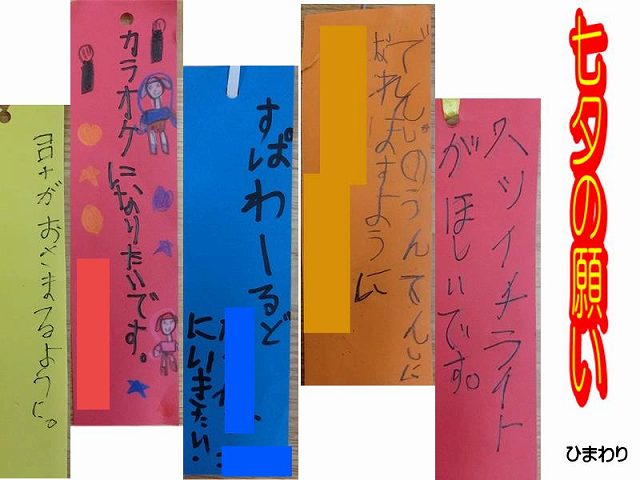 七夕の願い
ひまわり
スツイチライト
がほしいです。
でんしゃのうんてんしに
なれますように
すぱわーるど
にいきたい
カラオケになりたいです。
コロナがおさまるように。